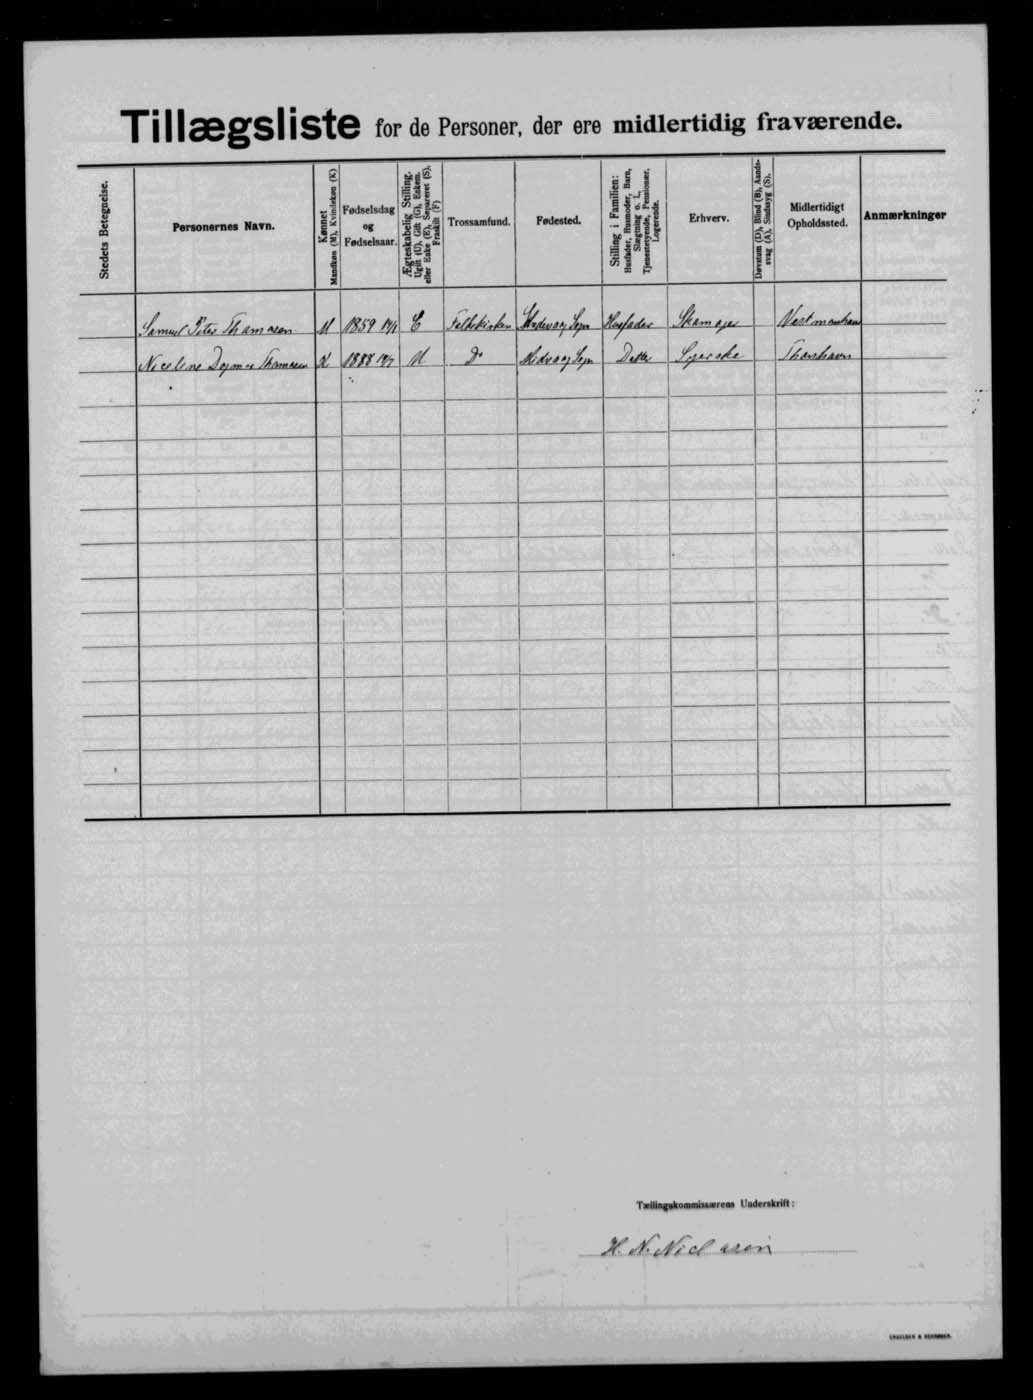 Tillægsliste for de Personer, der ere midlertidig fraværende.
Stedets Betegnelse.
Personernes Navn.
Kønnet
Mandkøn (M), Kvindekøn (K.)
Fødselsdag
og
Fødselsaar.
Ægteskabelig Stilling.
Ugift (U), Gift (G), Enkem.
eller Enke (E), Separeret (S),
Fraskilt (F)
Trossamfund.
Fødested.
Stilling i Familien:
Husfader, Husmoder, Barn,
Slægtning o. l.,
Tjenestetyende, Pensionær,
Logerende.
Erhverv.
Døvstum (D), Blind (B), Aands-
svag (A), Sindssyg (S).
Midlertidigt
Opholdssted.
Anmærkninger
Samuel Peter Thomasen M 1859 E Folkekirken Midvaag Sogn Husfader Skomager Vestmanhavn
Nicoline Dagmar Thomasen K 1888 U Do Midvaag Sogn Datter Syerske Thorshavn
Tællingskommissærens Underskrift:
H. N. Niclasen